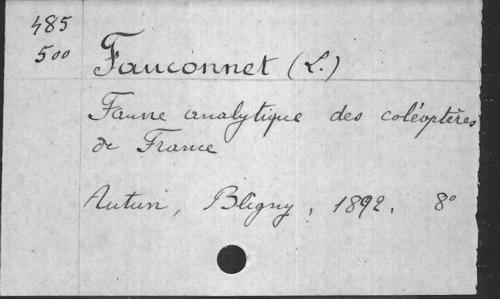 485
500
Fauconnet (L.)
Faune analytique des coléoptères
de France
Autun, Bligny, 1892, 8°